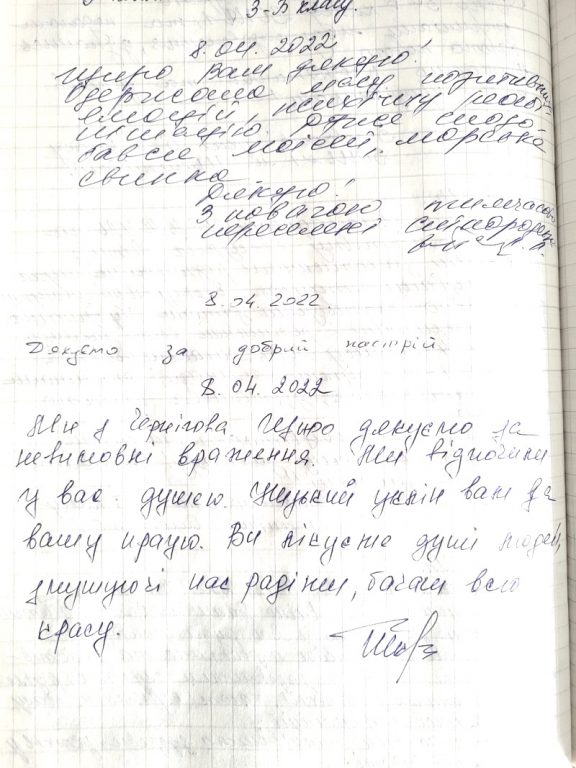 3-Б класу.
8.04.2022
Щиро Вам дякую!
Одержала масу позитивних
емоцій, психічну реабі
літацію. Дуже сподо
балась моїй, морська
свинка
Дякую!
З повагою тимчасово
переселені
8.04.2022.
Дякуємо за добрий настрій
8.04.2022
Ми з Чернігова. Щиро дякуємо за
невимовні враження. Ми відпочили
у вас душею. Низький уклін вам за
вашу працю. Ви лікуєте душі людей,
змушуючі нас радіти, бачити всю
красу.